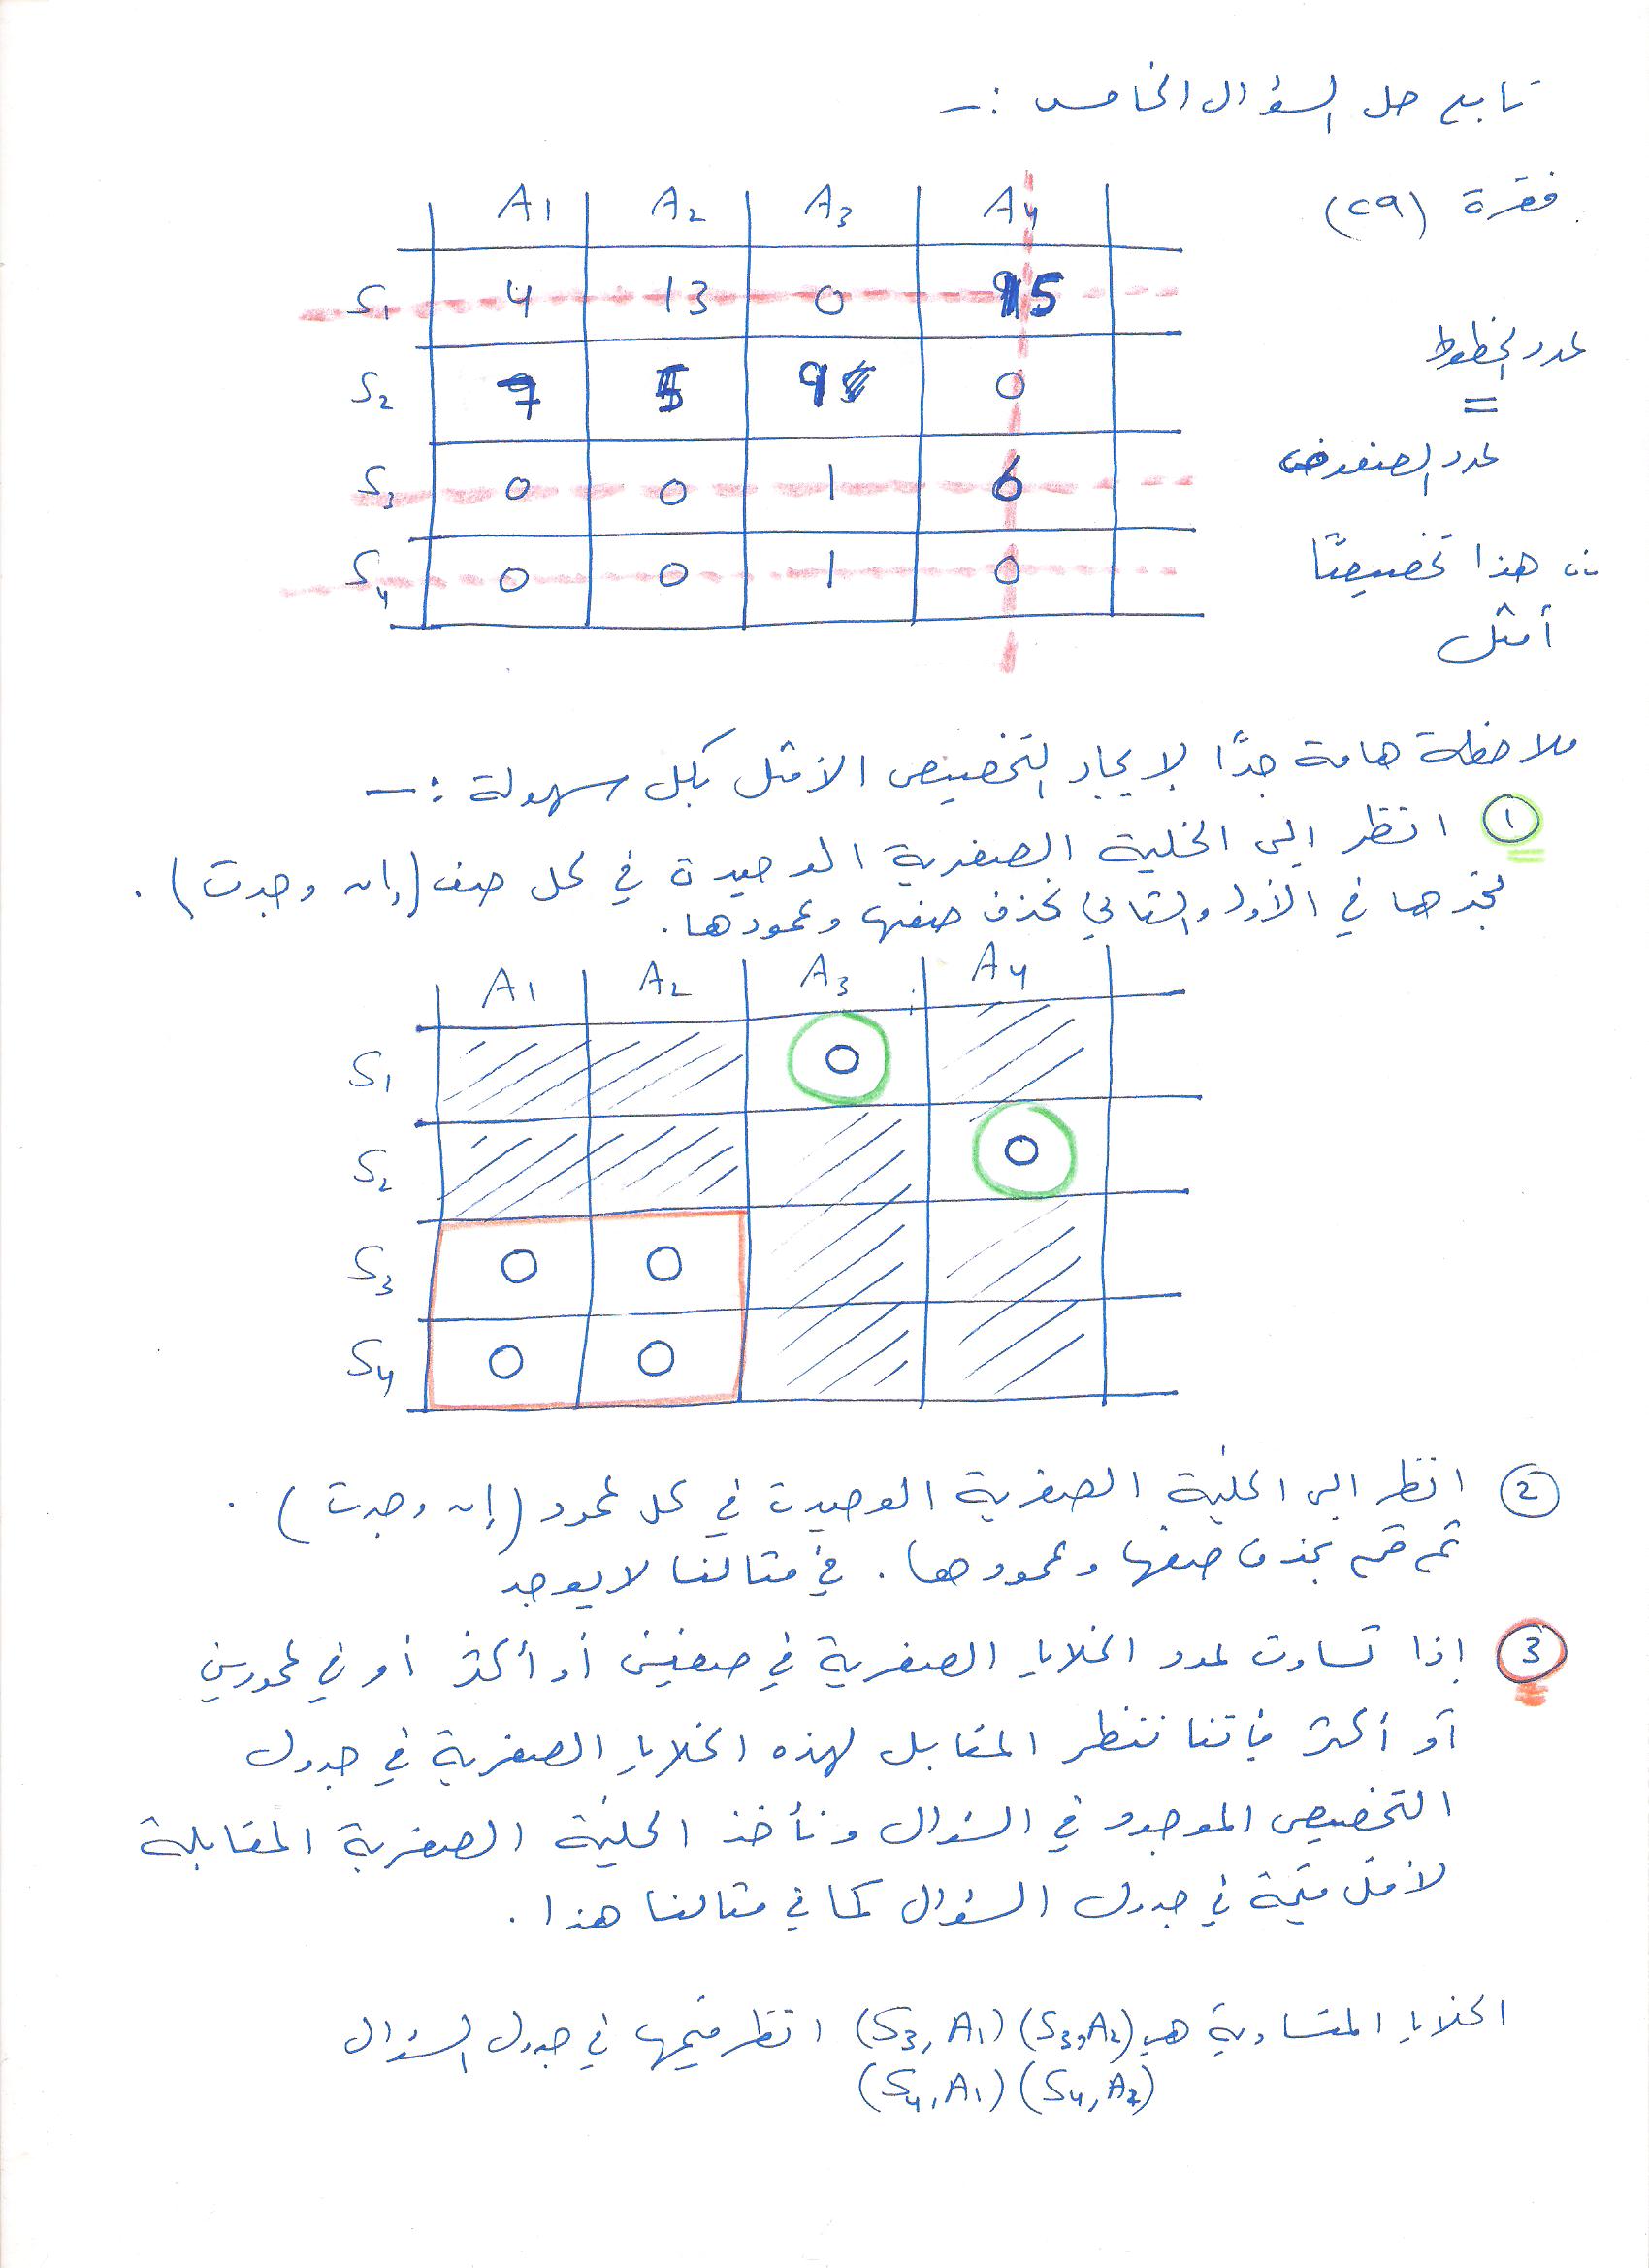 تابع حل السؤال الخامس :-
فقرة (٢٩)
A1 A2 A3 A4
S1 4 13 0 15
S2 7 5 9 0
S3 0 0 1 6
S4 0 0 1 0
عدد الخطوط
=
عدد الصفوف
∴ هذا تخصيصًا
أمثل
ملاحظة هامة جدًا لإيجاد التخصيص الأمثل بكل سهولة :-
① انظر إلى الخلية الصفرية الوحيدة في كل صف (إن وجدت) .
نجدها في الأول والثاني نحذف صفها وعمودها .
A1 A2 A3 A4
S1 0
S2 0
S3 0 0
S4 0 0
② انظر الى الخلية الصفرية الوحيدة في كل عمود (إن وجدت) .
ثم قم بحذف صفها وعمودها . في مثالنا لا يوجد
③ إذا تساوت عدد الخلايا الصفرية في صفين أو أكثر أو في عمودين
أو أكثر فإننا ننظر المقابل لهذه الخلايا الصفرية في جدول
التخصيص الموجود في السؤال ونأخذ الخلية الصفرية المقابلة
لأقل قيمة في جدول السؤال كما في مثالنا هذا .
الخلايا المتساوية هي (S3, A1) (S3, A2) انظر قيمها في جدول السؤال
(S4, A1) (S4, A2)